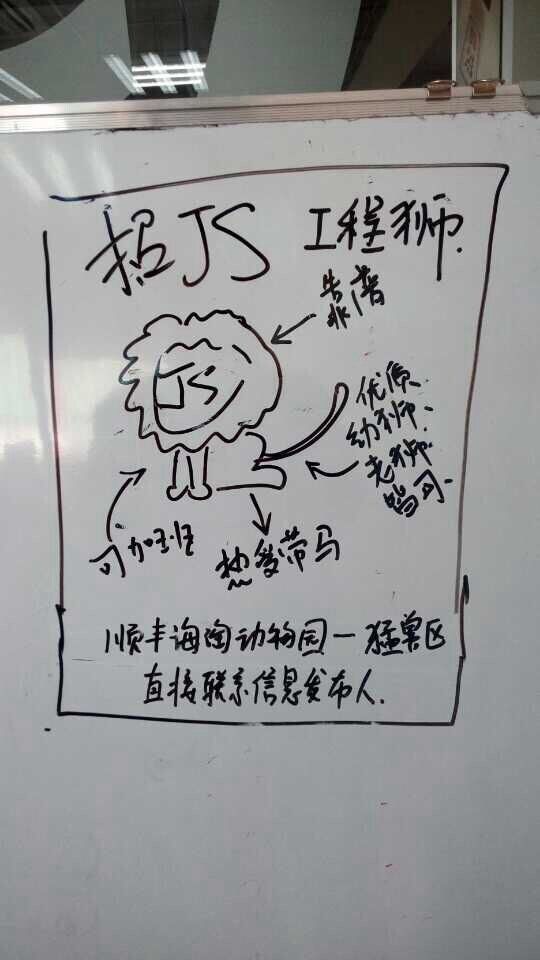 招JS 工程狮.
靠谱
JS
优质
幼狮、
老狮
皆可.
可加班
热爱带马
顺丰海淘动物园—猛兽区
直接联系信息发布人.